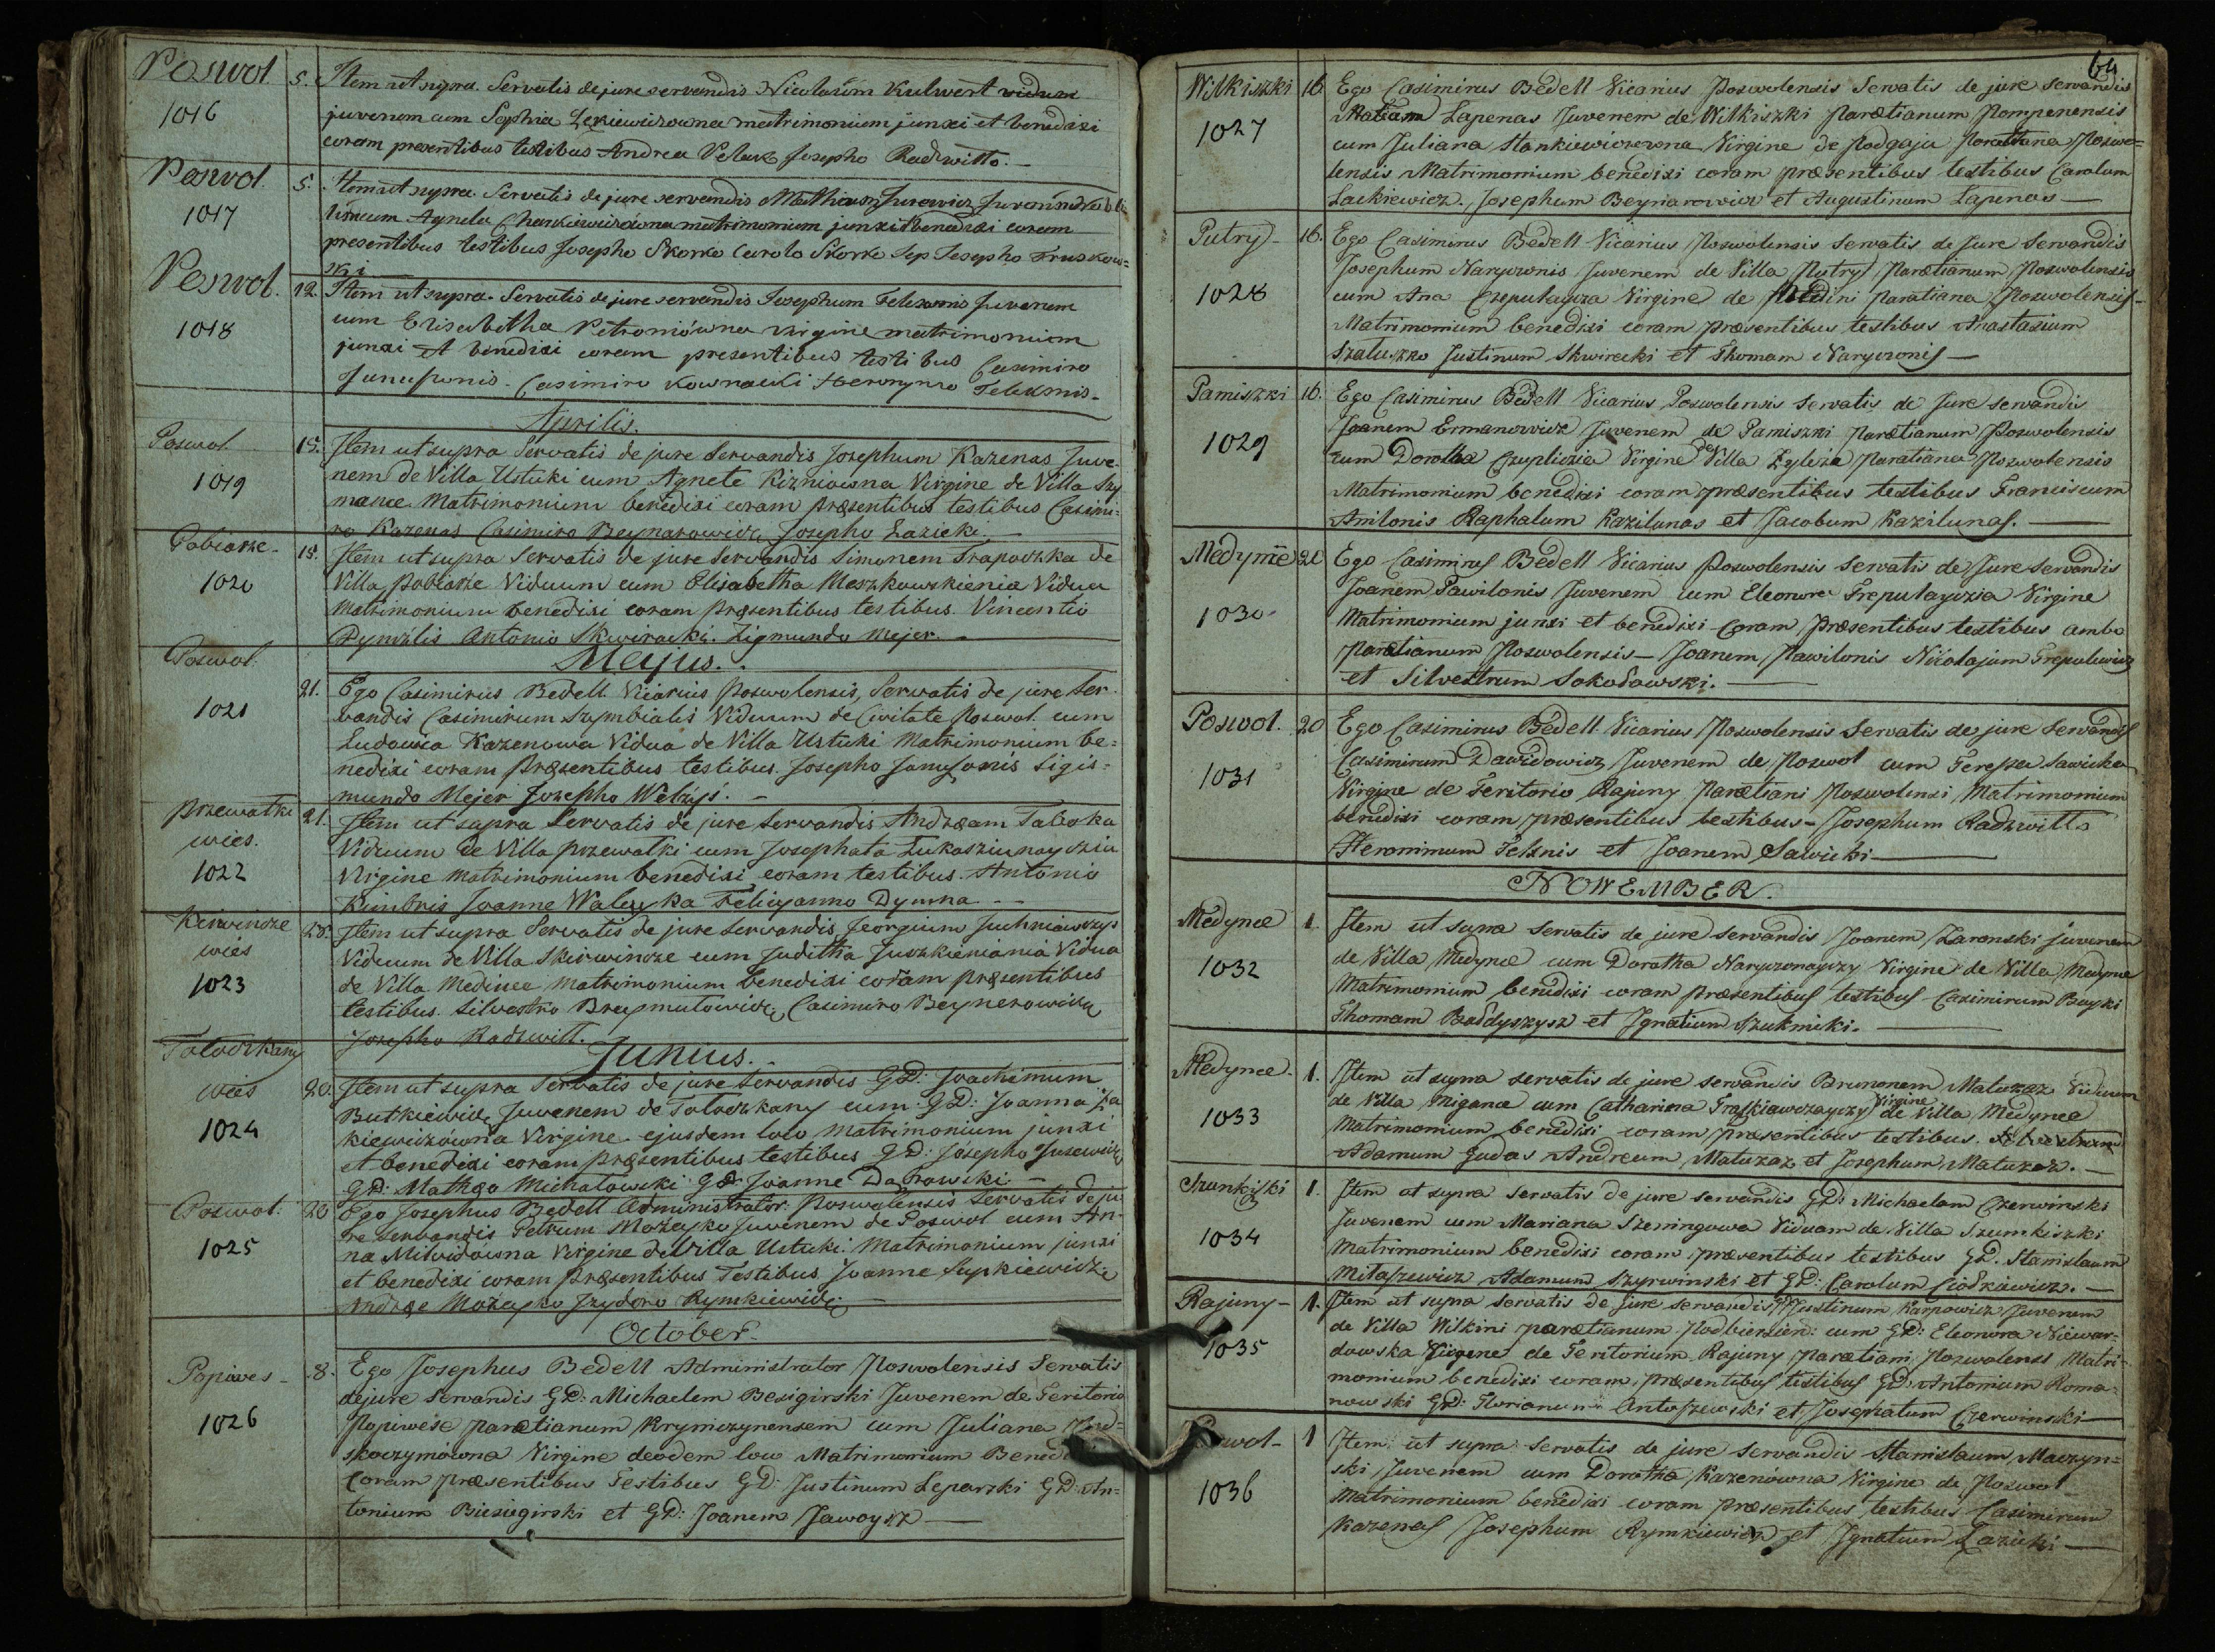 Poswol
1016
5. Item ut supra. Servatis de jure servandis Nicolaum Kulwert viduum
juvenem cum Sophia matrimonium junxi et benedixi
coram presentibus testibus Andrea Josepho Radzwiłło.—
Poswol.
1017
5. Item ut supra. Servatis de jure servandis Mathiam Jurewicz
cum Agneta matrimonium junxi et benedixi coram
presentibus testibus Josepho Skorko Carolo Skorko Josepho Truskow=
ski
Poswol.
1018
12. Item ut supra. Servatis de jure servandis Josephum Juvenem
cum Elisabetha Petroniówna virgine matrimonium
junxi et benedixi coram presentibus testibus Casimiro
Janusonis. Casimiro Kownacki Heronymo
Aprilis.
Poswol.
1019
15. Item ut supra Servatis de jure Servandis Josephum Kazenas Juve-
nem de Villa Ustuki cum Agnete Virgine de Villa Szy
mance Matrimonium benedixi coram præsentibus testibus Casimi=
ro Kazenas Casimiro Beynarowicz, Josepho Łazicki.
Pobiarze-
1020
15. Item ut supra Servatis de jure Servandis Simonem Trapoczka de
Villa Pobiarze Viduum cum Elisabetha Meszkowskienia Vidua
Matrimonium benedixi coram præsentibus testibus. Vincentio
Antonio Skwiracki. Zigmundo Mejer.—
Majus.
Poswol.
1021
21. Ego Casimirus Bedell Vicarius Poswolensis, Servatis de jure ser-
vandis Casimirum Szymbialis Viduum de Civitate Poswol. cum
Ludowica Kazenowa Vidua de Villa Ustuki Matrimonium be=
nedixi coram præsentibus testibus. Josepho Janusonis Sigis=
mundo Mejer Josepho Wełżys. —
Przewałki
wies.
1022
21. Item ut supra Servatis de jure servandis Andræam Taboka
Viduum de Villa Przewalki cum Josephata
Virgine Matrimonium benedixi coram testibus. Antonio
Kimbris Joanne Feliciyanno Dymna - -
wies
1023
28. Item ut supra Servatis de jure servandis Jeorgium
Viduum de Villa Skirwincze cum Juditha Vidua
de Villa Medince Matrimonium benedixi coram præsentibus
testibus. Silvestro Casimiro Beynerowicz
Josepho Radzwiłł.
Junius.
Tatoczkany
wies
1024
20. Item ut supra Servatis de jure servandis GD: Joachimum
Butkiewicz, Juvenem de Tatoczkany cum. GD: Joanna
kiewiczówna Virgine ejusdem loco Matrimonium junxi
et benedixi coram præsentibus testibus GD: Josepho Jusewicz
GD: Mathæo Michałowski GD: Joanne Dabrowski —
Poswol.
1025
20 Ego Josephus Bedell Administrator Poswolensis servatis de ju
re servandis Petrum Możeyko Juvenem de Poswol cum An-
na Milwidówna Virgine de Villa Ustuki. Matrimonium junxi
et benedixi coram præsentibus Testibus Joanne
Andræe Możeyko Izydoro Rymkiewicz —
October
Popiwes -
1026
8. Ego Josephus Bedell Administrator Poswolensis Servatis
de jure servandis GD: Michaelem Besigirski Juvenem de Teritorio
Popiwese parætianum Krynczynensem cum Juliana
Virgine deodem loco Matrimonium
Coram præsentibus Testibus GD: Justinum Leparski GD: An=
tonium Biesiegirski et GD: Joanem Jawoysz —
64
Wilkiszki
1027
16 Ego Casimirus Bedell Vicarius Poswolensis Servatis de jure servandis
Łapenas Juvenem de Wilkiszki Parætianum Pompenensis
cum Juliana Stankiewiczowna Virgine de Podgaju Parætiana Poswo=
lensis Matrimonium benedixi coram præsentibus testibus Carolum
Lackiewicz. Josephum Beynarowicz et Augustinum Łapenas —
Putryj-
1028
16. Ego Casimirus Bedell Vicarius Poswolensis Servatis de Jure Servandis
Josephum Naryworiis Juvenem de Villa Putryj Parætianum Poswolensis
cum Ana Virgine de Parætiana Poswolensis-
Matrimonium benedixi coram præsentibus testibus Anastasium
Justinum Skwirecki et Thomam —
Pamiszki
1029
16. Ego Casimirus Bedell Vicarius Poswolensis Servatis de Jure servandis
Joanem Ermanowicz Juvenem de Pamiszki Parætianum Poswolensis
cum Dorotha Virgine de Villa Parætiana Poswolensis
Matrimonium benedixi coram præsentibus testibus Franciscum
Anilonis Raphalum Kazilunas et Jacobum Kazilunas.
1030
20 Ego Casimirus Bedell Vicarius Poswolensis Servatis de Jure servandis
Joanem Pawilonis Juvenem cum Eleonora Virgine
Matrimonium junxi et benedixi Coram Præsentibus testibus ambo
Parætianum Poswolensis— Joanem Pawilonis Nikolajum
et Silvestrum Sokołowski. —
Poswol.
1031
20 Ego Casimirus Bedell Vicarius Poswolensis Servatis de jure servandis
Casimirum Dawidowicz Juvenem de Poswol cum Teressa Sawicka
Virgine de Teritorio Rajuny Parætiani Poswolensi Matrimonium
benedixi coram præsentibus testibus- Josephum Radzwiłł
Heronimum Telxnis et Joanem Sawicki —
NOWEMBER.
Medynce
1032
1. Item ut supra servatis de jure servandis Joanem Zaronski juvenem
de Villa Medynce cum Dorotha Virgine de Villa Medynce
Matrimonium benedixi coram præsentibus testibus Casimirum
Thomam et Ignatium Szukmicki. —
Medynce-
1033
1. Item ut supra servatis de jure servandis Brunonem Matuzaz Viduum
de Villa Migance cum Catharina Virgine de Villa Medynce
Matrimonium benedixi coram præsentibus testibus.
Adamum Judas Andreum Matuzaz et Josephum Matuzaz. —
1034
1. Item ut supra servatis de jure servandis GD: Michaelem Czerwinski
Juvenem cum Mariana Szemingowa Viduam de Villa Szumkiszki
Matrimonium benedixi coram præsentibus testibus GD. Stanislaum
Mitaszewicz Adamum Szyrwinski et GD: Carolum —
Rajuny-
1035
1. Item ut supra servatis de jure servandis GD Justinum Karpowicz Juvenem
de Villa Wilkini parætianum cum GD: Eleonora Niewar=
dowska Virgine de Teritorium Rajuny Parætiani Poswolensi Matri-
monium benedixi coram præsentibus testibus GD: Antonium Roma=
nowski GD: Florianum Antoszewski et Josephatum Czerwinski
1036
1 Item ut supra servatis de jure servandis Stanisłaum Maczyn=
ski Juvenem cum Dorotha Kazenowna Virgine de Poswol
Matrimonium benedixi coram præsentibus testibus Casimirum
Kazenas Josephum Rymkiewicz et Ignatium Łazicki —